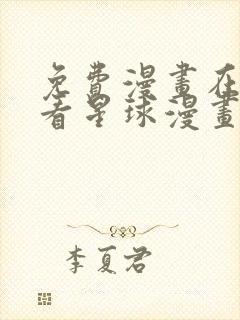 免費漫畫在
看星球漫畫
李夏君